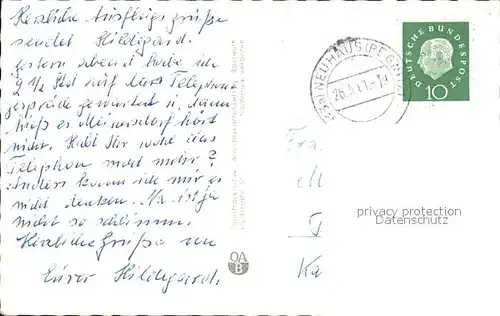 Herzliche Ausflugsgrüße
sendet Hildegard.
Gestern abend habe ich
9 1/2 Std auf das Telephon
gespräch gewartet u. dann
hieß es Meinersdorf hört
nicht. Habt Ihr wohl das
Telephon nicht mehr?
Anders kann ich mir es
nicht denken. Na ist ja
nicht so schlimm.
Herzliche Grüße von
Eurer Hildegard.
OA
B
NEUHAUS (PEGNITZ)
DEUTSCHE BUNDESPOST
10
privacy protection
Datenschutz